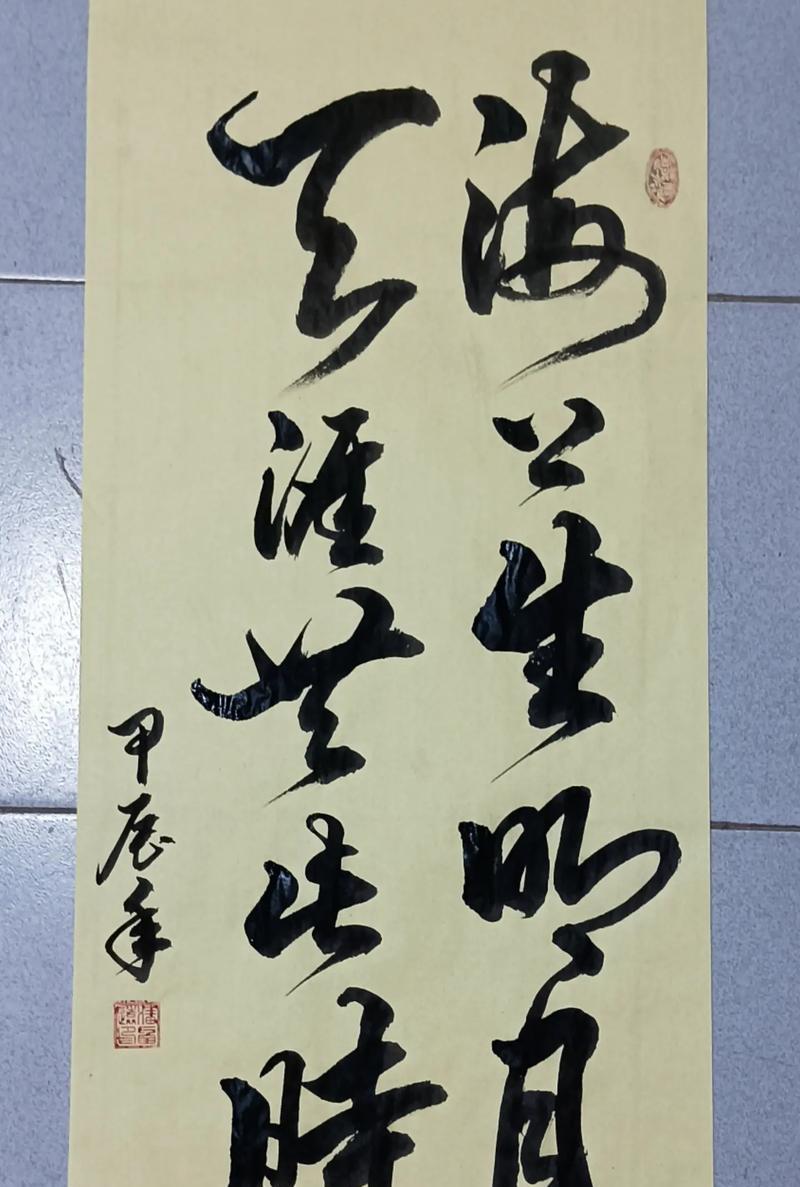 海上生明月
天涯共此時
甲辰年